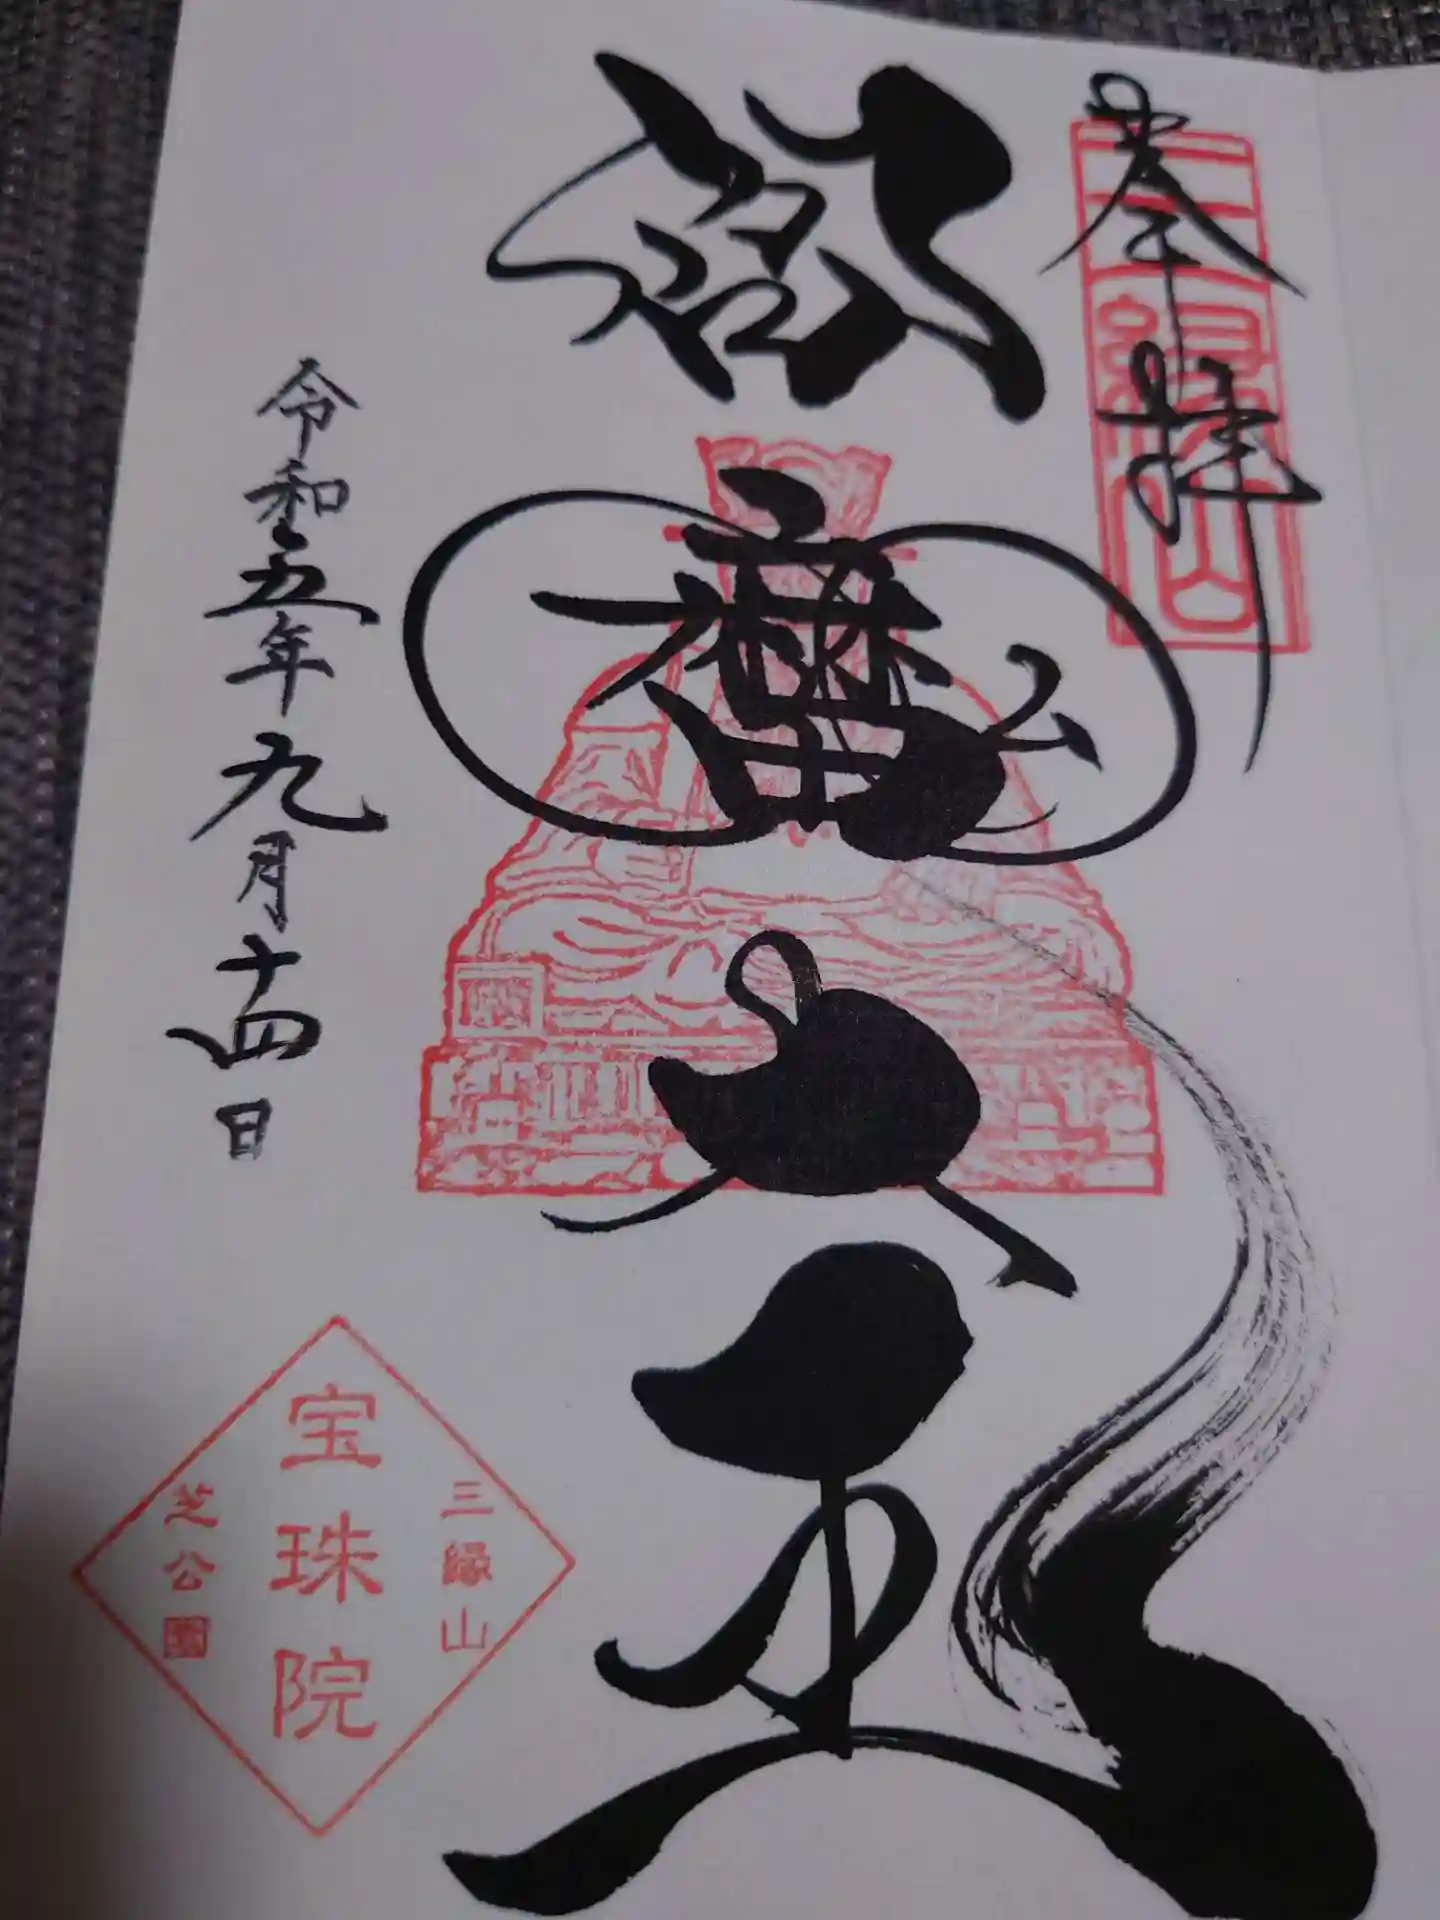 奉拝
三縁山
閻魔大王
令和五年九月十四日
三縁山
宝珠院
芝公園